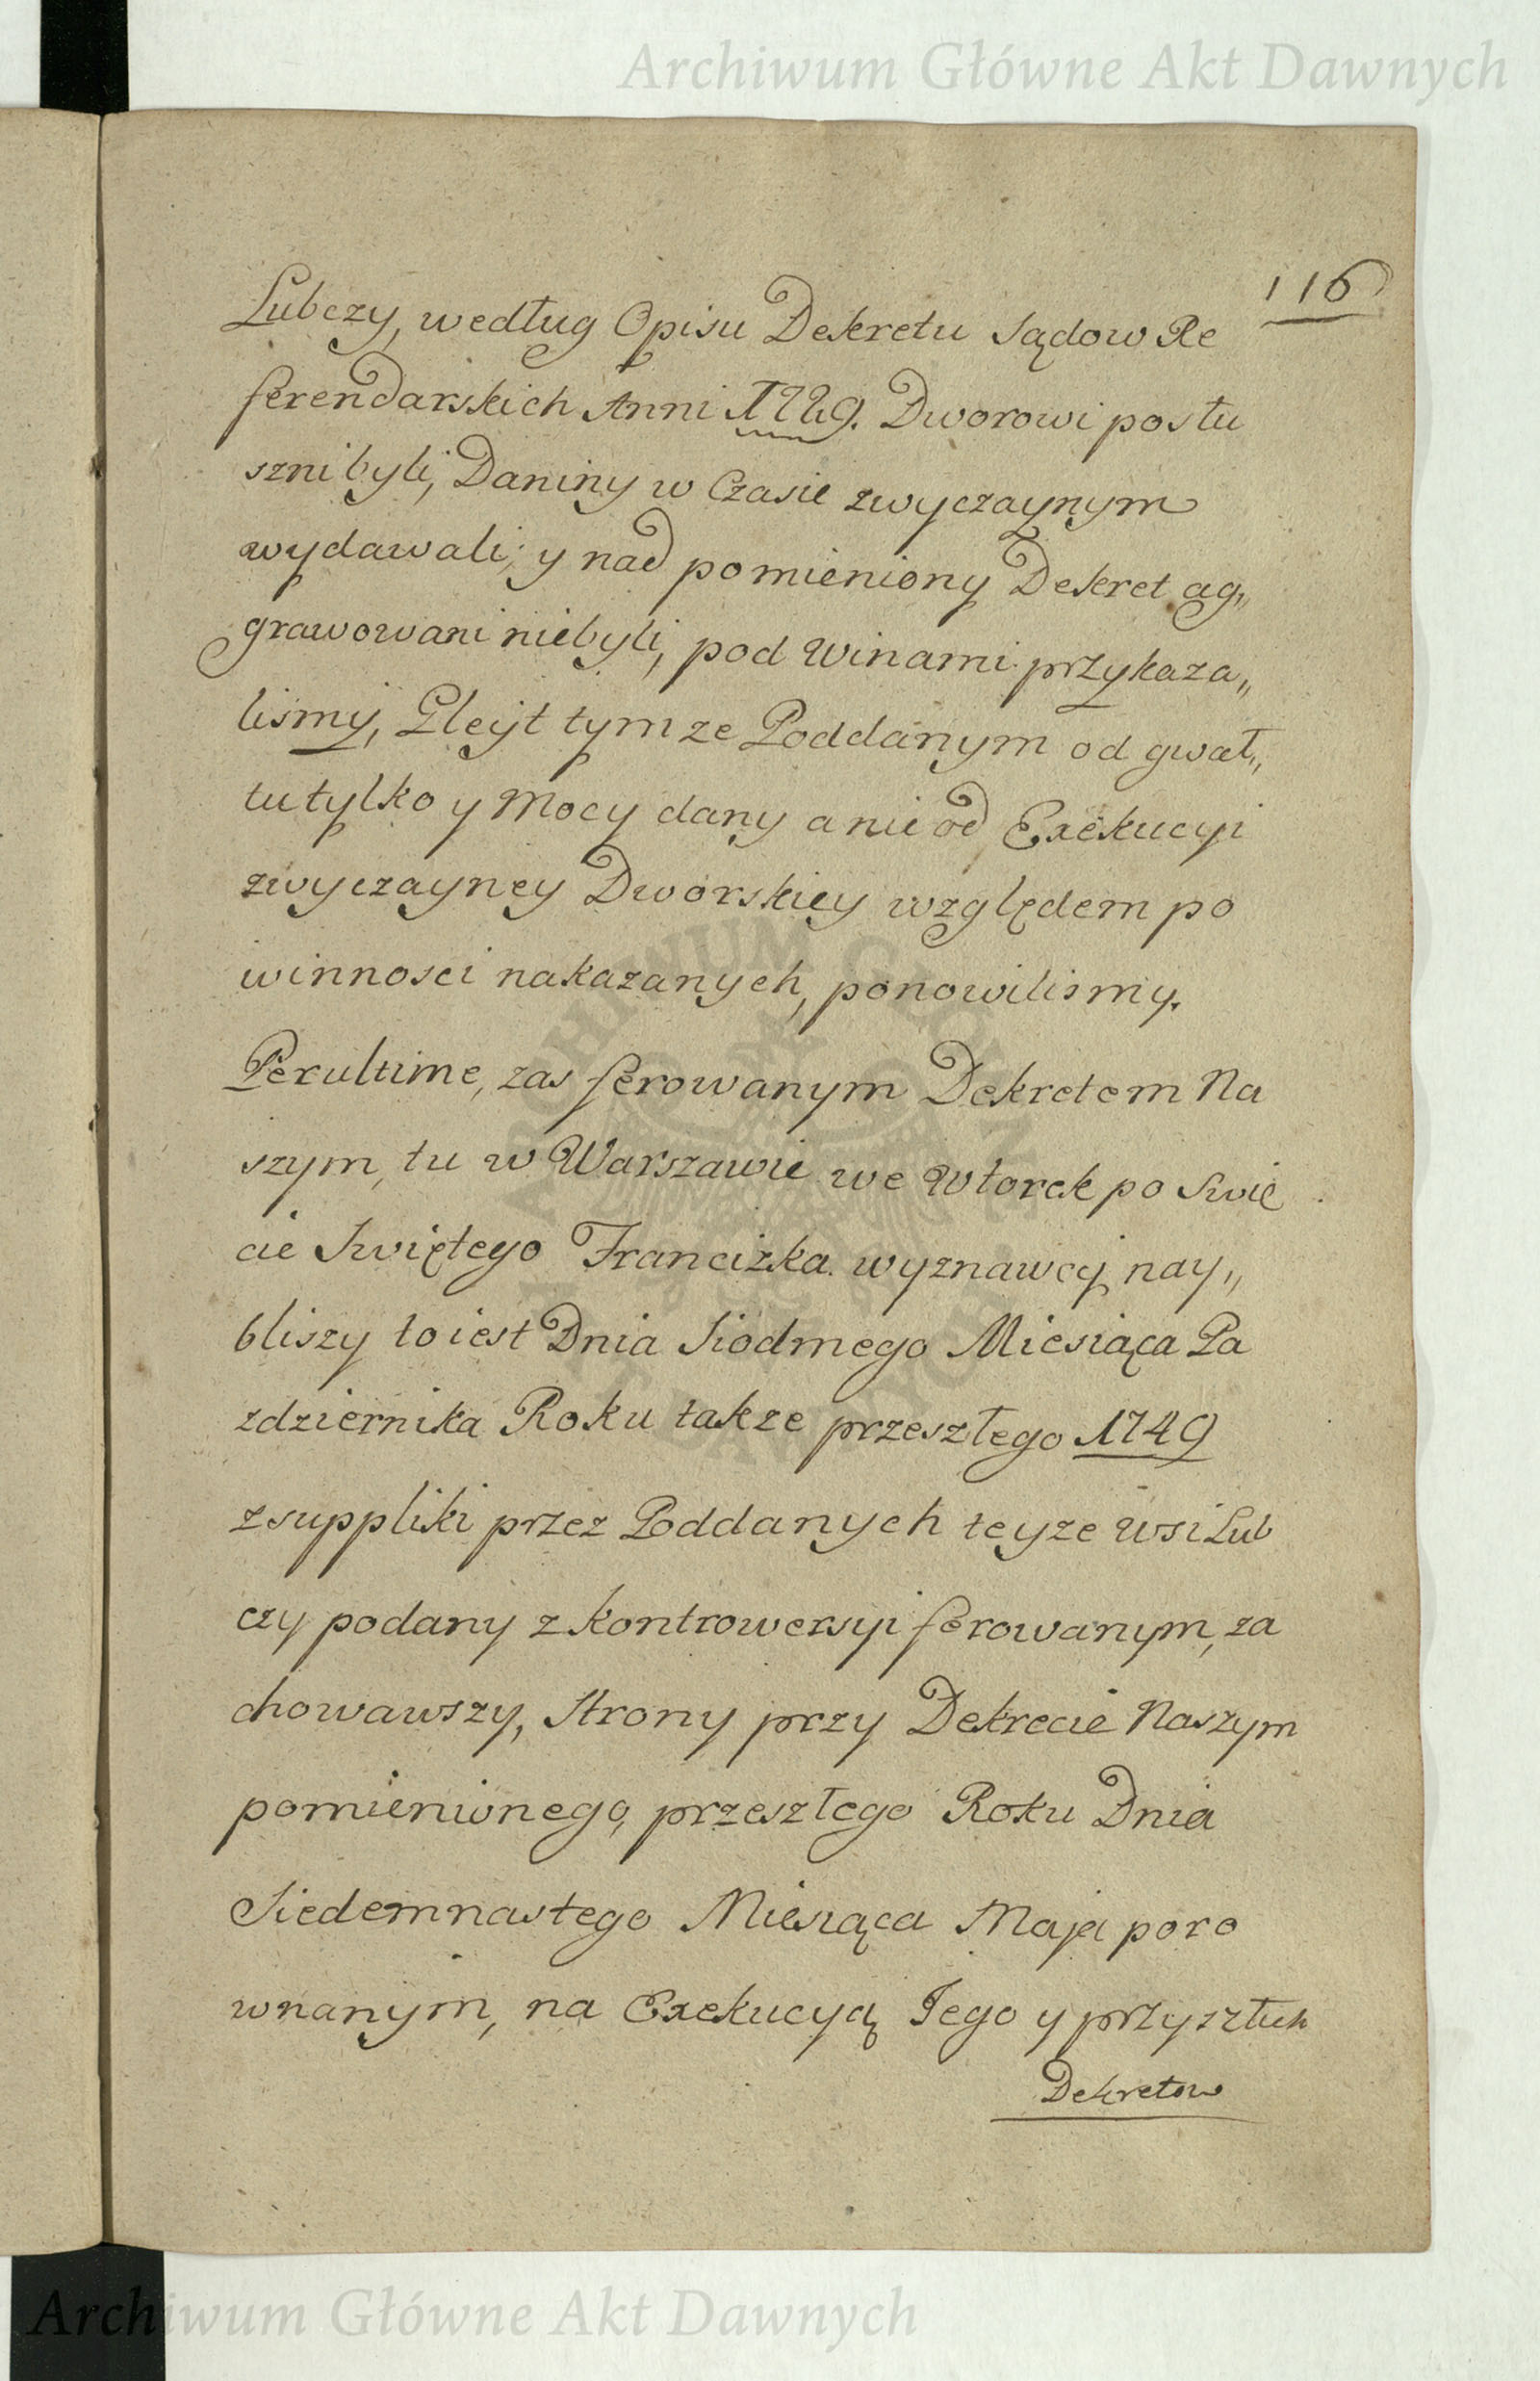 Archiwum Główne Akt Dawnych
116
Lubczy, według Opisu Dekretu Sądow Re
ferendarskich Anni 1729. Dworowi posłu
szni byli, Daniny w Czasie zwyczaynym
wydawali; y nad pomieniony Dekret ag„
grawowani niebyli, pod Winami przykaza„
lismy, Gleyt tymze Poddanym od gwał„
tu tylko y Mocy dany a nie od Exekucyi
zwyczayney Dworskiey względem po
winnosci nakazanych, ponowilismy.
Perultime, zas ferowanym Dekretem Na
szym, tu w Warszawie we Wtorek po Swię
cie Swiętego Franciszka wyznawcy nay„
bliszy to iest Dnia Siodmego Miesiąca Pa
zdziernika Roku takze przeszłego 1749
z suppliki przez Poddanych teyze Wsi Lub
czy podany z kontrowersyi ferowanym, za
chowawszy, Strony przy Dekrecie Naszym
pomienionego, przeszłego Roku Dnia
Siedemnastego Miesiąca Maja poro
wnanym, na Exekucyą Jego y przyszłuh
Dekretow
ARCHIWUM GŁÓWNE AKT DAWNYCH
Archiwum Główne Akt Dawnych